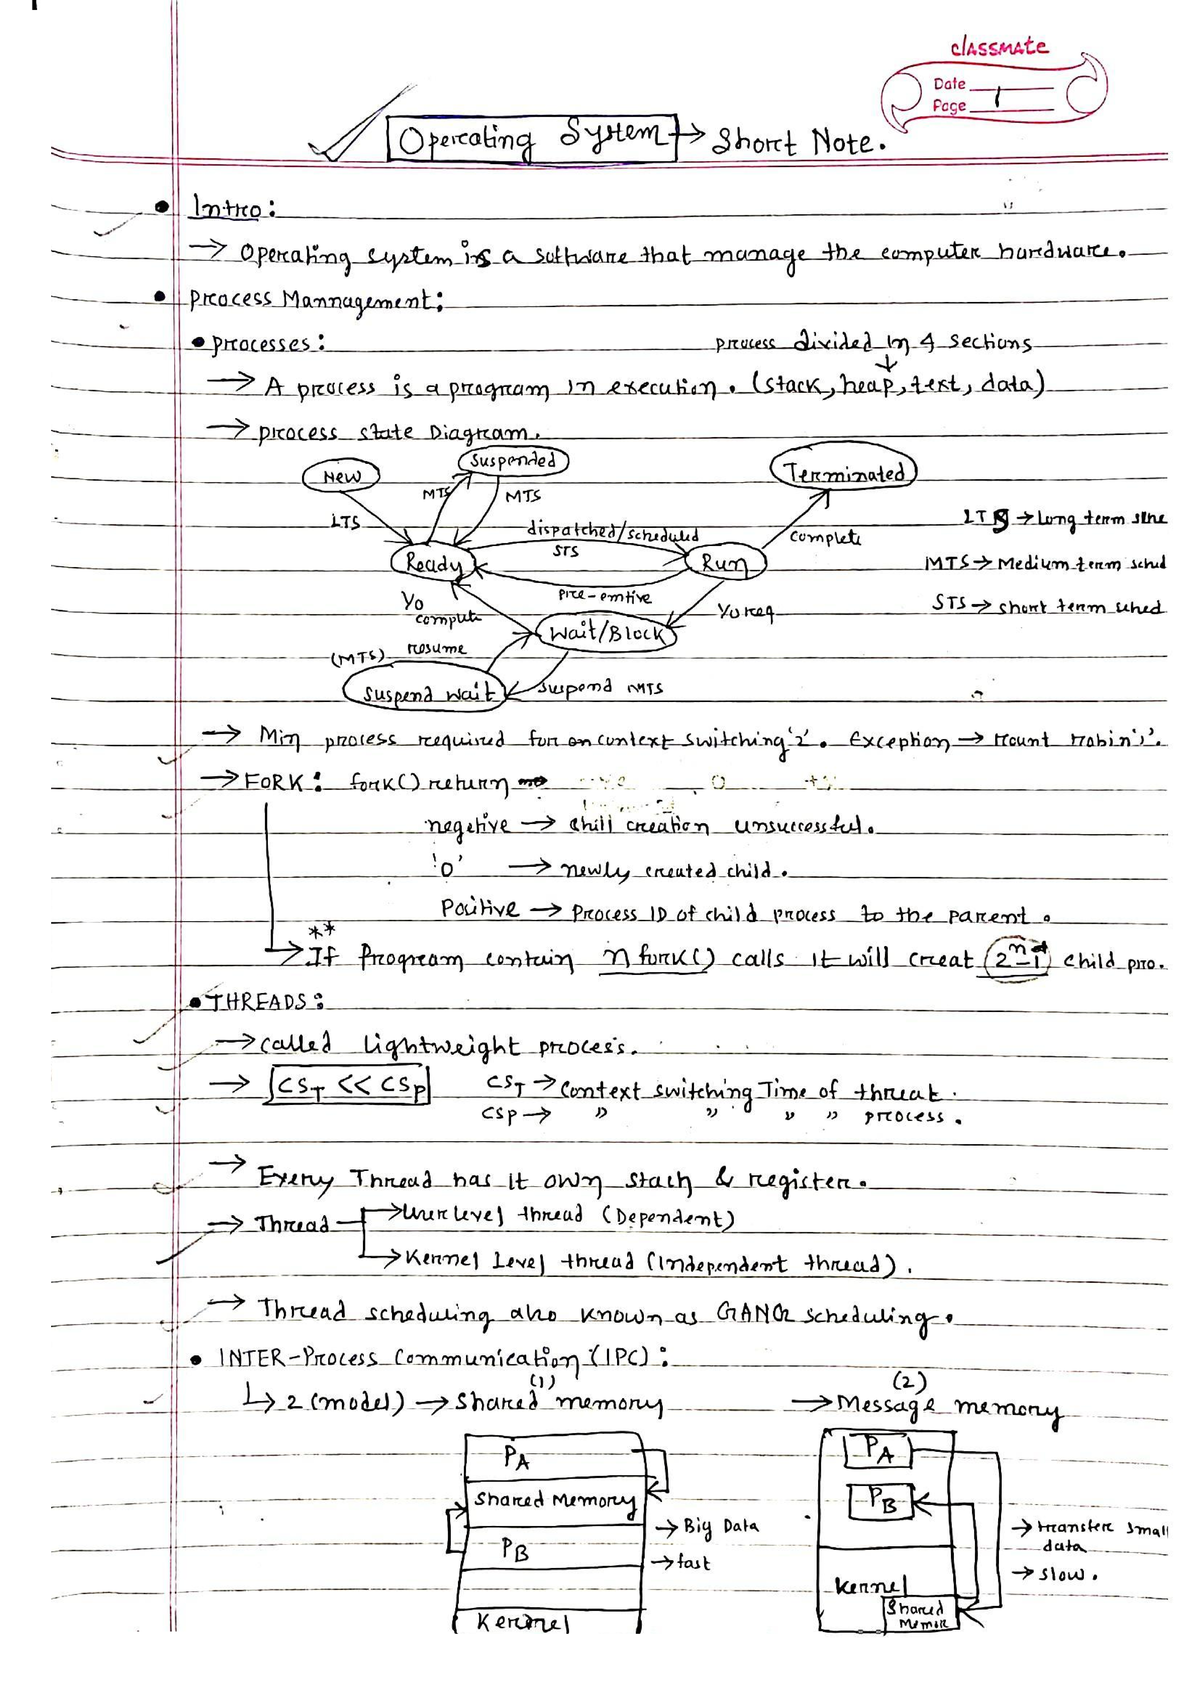 classmate
Date
Page 1
Operating System → Short Note.
• Intro:
→ Operating system is a software that manage the computer hardware.
• Process Mannagement:
• Processes:
process divided in 4 sections
→ A process is a program in execution. (stack, heap, text, data)
→ process state Diagram.
New
Suspended
Terminated
MTS
MTS
LTS
dispatched/scheduled
STS
complete
LTS → Long term
Ready
Run
MTS → Medium term sched
pre-emtive
STS → short term sched
I/O
I/O req
Wait/Block
(MTS) resume
Suspend wait
suspend MTS
→ Min process required for an context switching '2'. Exception →
→ FORK: fork() return
negetive → chill creation unsuccessful.
'0' → newly created child.
Positive → Process ID of child process to the parent.
**
→ If Program contain n fork() calls it will creat 2^n-1 child pro.
• THREADS:
→ called lightweight process.
→ CS_T << CS_P CS_T → Context switching Time of threat.
CS_P → " " " " process.
→ Every Thread has it own stach & register.
→ Thread → User level thread (Dependent)
→ Kernel Level thread (Independent thread).
→ Thread scheduling also known as GANG scheduling.
• INTER-Process Communication (IPC):
(1) (2)
↳ 2 (model) → Shared memory → Message memory
P_A
Shared Memory
P_B
Kernel
→ Big Data
→ fast
P_A
P_B
Kernel
Shared
→ transfer small
data
→ slow.